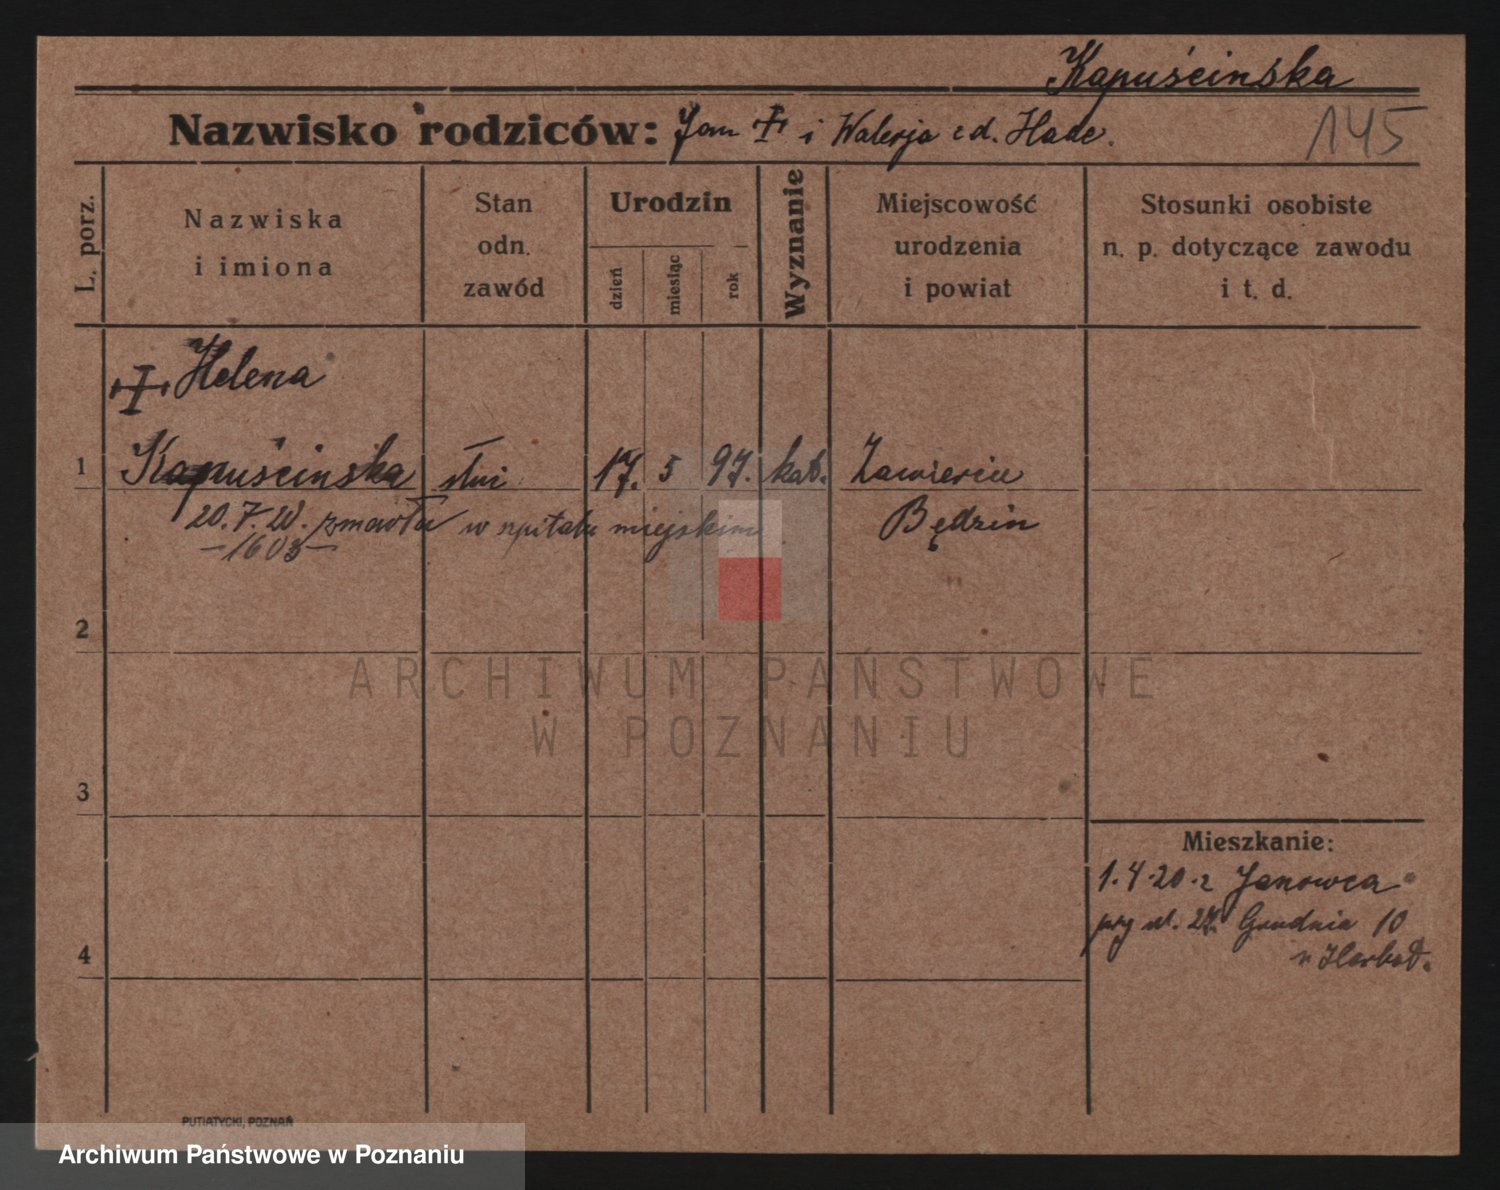 Kapuścinska
Nazwisko rodziców: Jan i Walerja z d. Hade.
145
L. porz.
Nazwiska
i imiona
Stan
odn.
zawód
Urodzin
dzień
miesiąc
rok
Wyznanie
Miejscowość
urodzenia
i powiat
Stosunki osobiste
n. p. dotyczące zawodu
i t. d.
Helena
1 Kapuścinska 17. 5 97. kat. Zawiercie
20. 7. 20. zmarła w szpitalu miejskim Będzin
-1603-
2
3
4
Mieszkanie:
1.4.20 z Janowca
przy ul. 27. Grudnia 10
PUTIATYCKI, POZNAŃ
ARCHIWUM PAŃSTWOWE
W POZNANIU
Archiwum Państwowe w Poznaniu